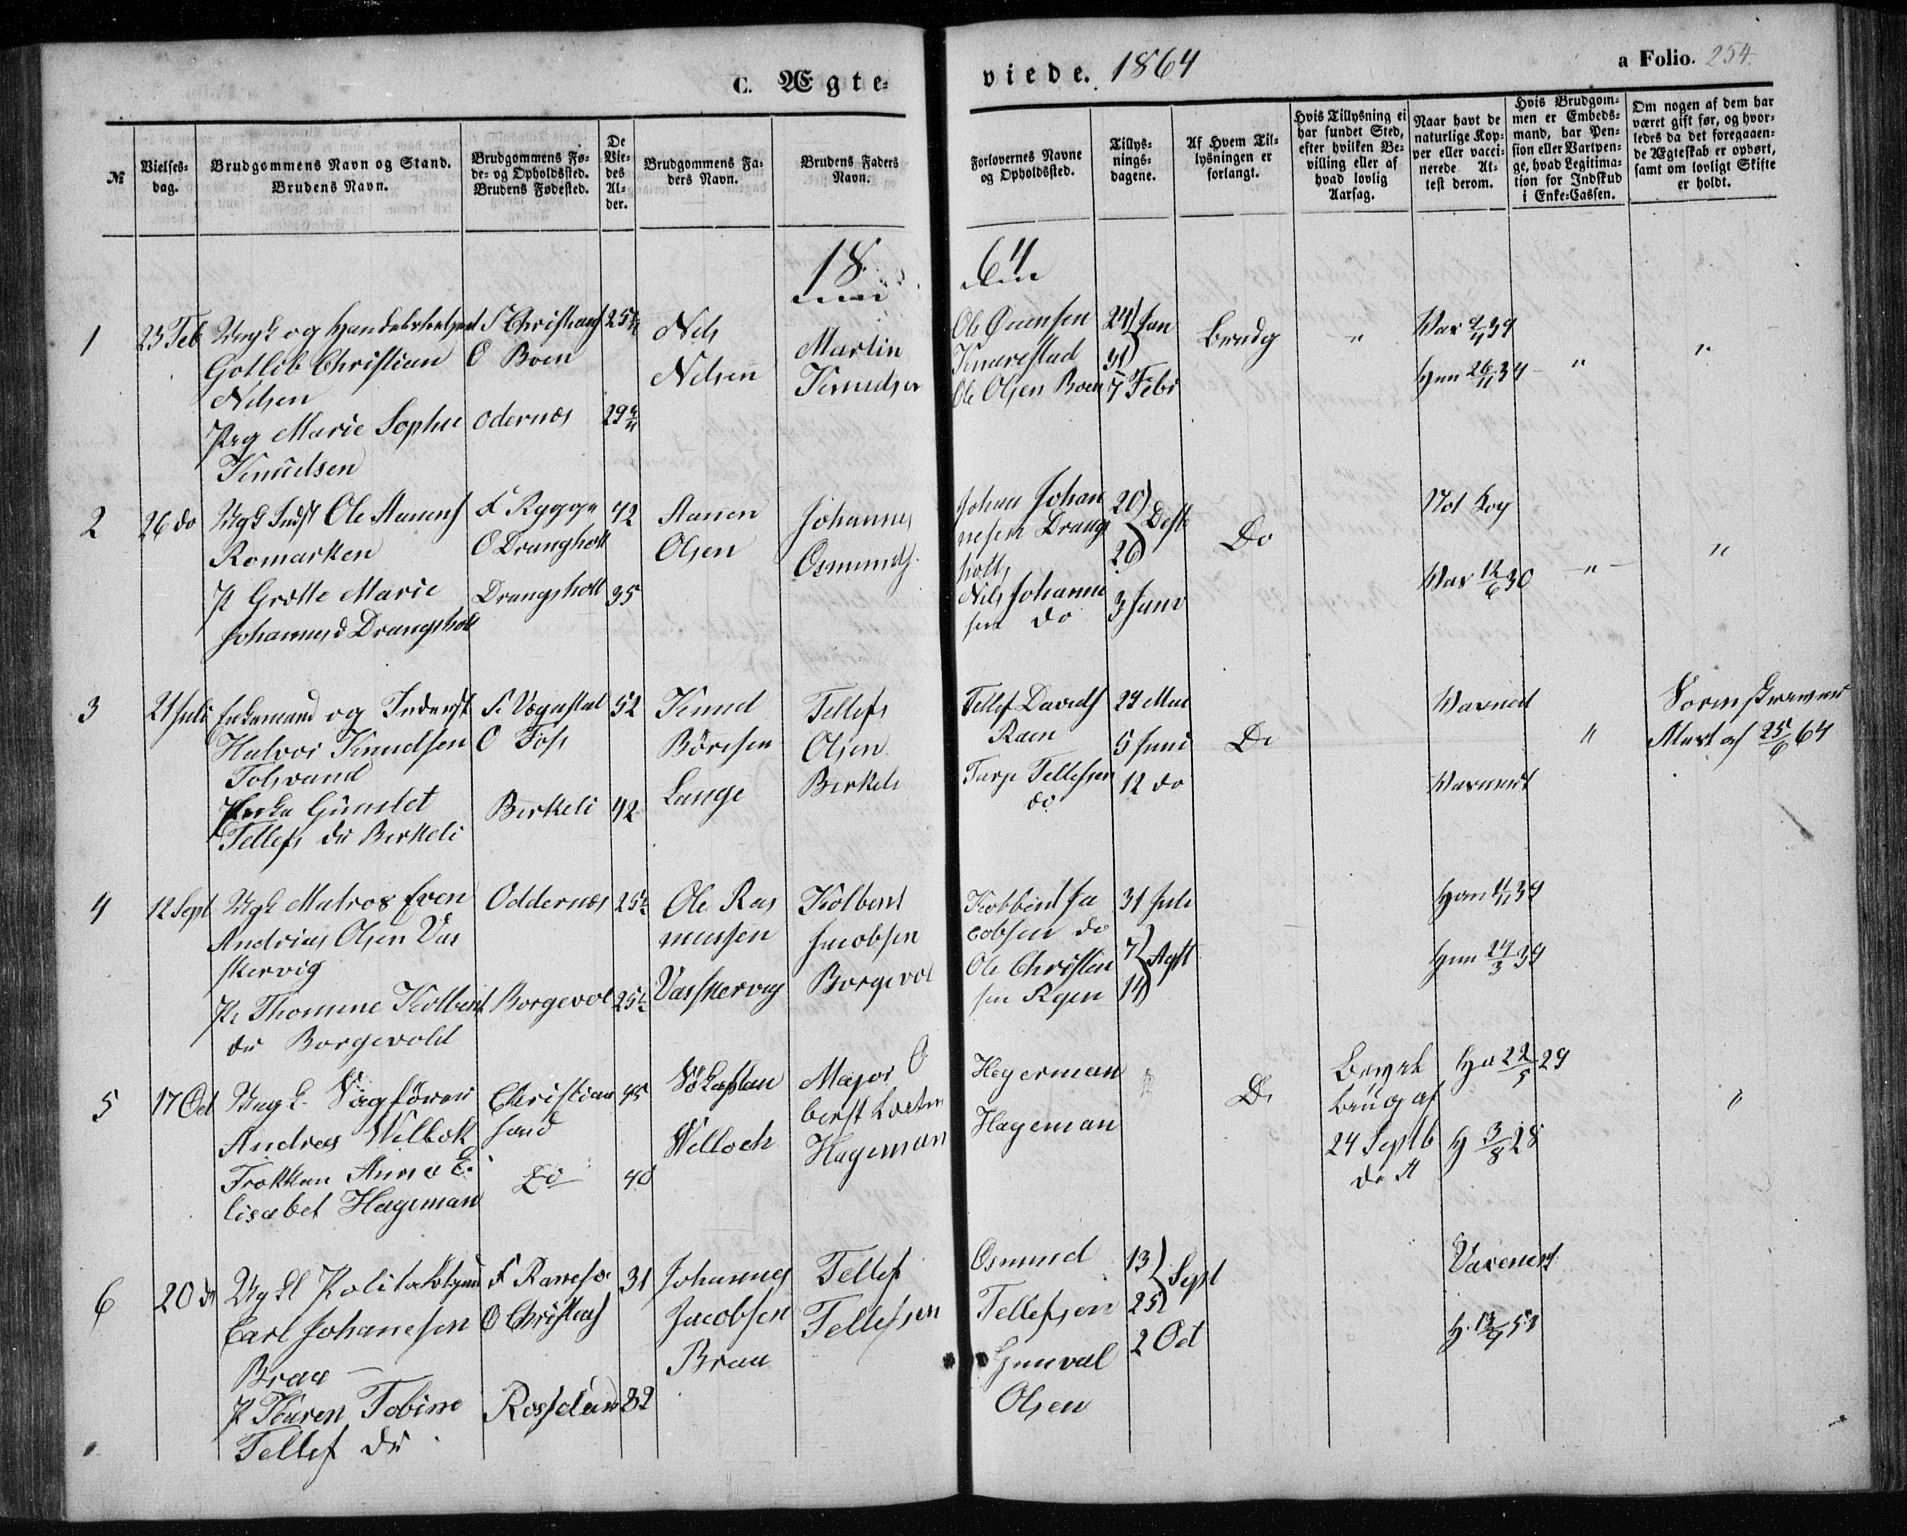 C. Ægte-
viede. 1864
a Folio. 254.
№
Vielses-
dag.
Brudgommens Navn og Stand.
Brudens Navn.
Brudgommens Fø-
de- og Opholdssted.
Brudens Fødested.
De
Vie-
des
Al-
der.
Brudgommens Fa-
ders Navn.
Brudens Faders
Navn.
Forlovernes Navne
og Opholdssted.
Tillys-
nings-
dagene.
Af Hvem Til-
lysningen er
forlangt.
Hvis Tillysning ei
har fundet Sted,
efter hvilken Be-
villing eller af
hvad lovlig
Aarsag.
Naar havt de
naturlige Kop-
per eller vacci-
nerede. At-
test derom.
Hvis Brudgom-
men er Embeds-
mand, har Pen-
sion eller Vartpen-
ge, hvad Legitima-
tion for Indskud
i Enke-Cassen.
Om nogen af dem har
været gift før, og hvor-
ledes da det foregaaen-
de Ægteskab er ophørt,
samt om lovligt Skifte
er holdt.
18 64
1
23 Feb
Ungk og
Gotlib Christian
Nilsen
Pig Marie Sophie
Knudsen
F Christians
O Boen
Odernæs
25
29
Nils
Nilsen
Martin
Knudsen
Ole
Knarestad
Ole Olsen Boen
24 Jan
31
7 Febr
Brudg
"
Vax 39
Hun 26/11 34
"
"
2
26 do
Ungk Indst Ole Aanens
Romarken
P Grette Marie
Johannesd Drangsholt
F Rygge
O Drangsholt
Drangsholt
42
35
Aanen
Olsen
Johannes
Osmunds
Johan Johan
nesen Drangs
holt
Nils Johanne
sen do
20
26
Desbr
3 Janv
Do
Not Kop
Vax 12/6 30
"
"
3
21 Juli
Enkemand og Inderst
Halvor Knudsen
Tolsvand
Enke Gunild
Tellefs dr Birkeli
F Vegustad
O Foss
Birkeli
52
42
Knud
Börresen
Lange
Tellefs
Olsen
Birkeli
Tellef Davids
Raen
Tarje Tellefsen
do
29 Mai
5 Juni
12 do
Do
Vaxnert
Vaxnert
"
Sorenskriver
Attest af 25/6 64
4
12 Sept
Ungk Matros Even
Andreas Olsen Vas
skervig
P. Thomine Kolbens
dr Borgevold
Oddernæs
Borgevol
25
25
Ole Ras
mussen
Vasskervig
Kolben
Jacobsen
Borgevol
Kolben Ja
cobsen do
Ole Christen
sen Rgen
31 Juli
7
14
Agst
Han 39
Hun 24/3 39
5
17 Oct
Ungk. Sagförer
Andreas Wilbok
Frøkken Anna E.
lisabet Hageman
Christian
sand
Do
45
40
Sökaptan
Welloch
Major O
berst
Hageman
Hegerman
Hageman
Do
24 Septb
d. A
Ha 22/5 29
H 3/8 28
"
6
20 do
Ungk Politibetjent
Carl Johanesen
Braa
P Karen Tobine
Tellef dr
F
O Christians
31
32
Johannes
Jacobsen
Braa
Tellef
Tellefsen
Osmund
Tellefsen
Gunval
Olsen
13
25
Sept
2 Oct
Vaxenert
H. 13/9 51